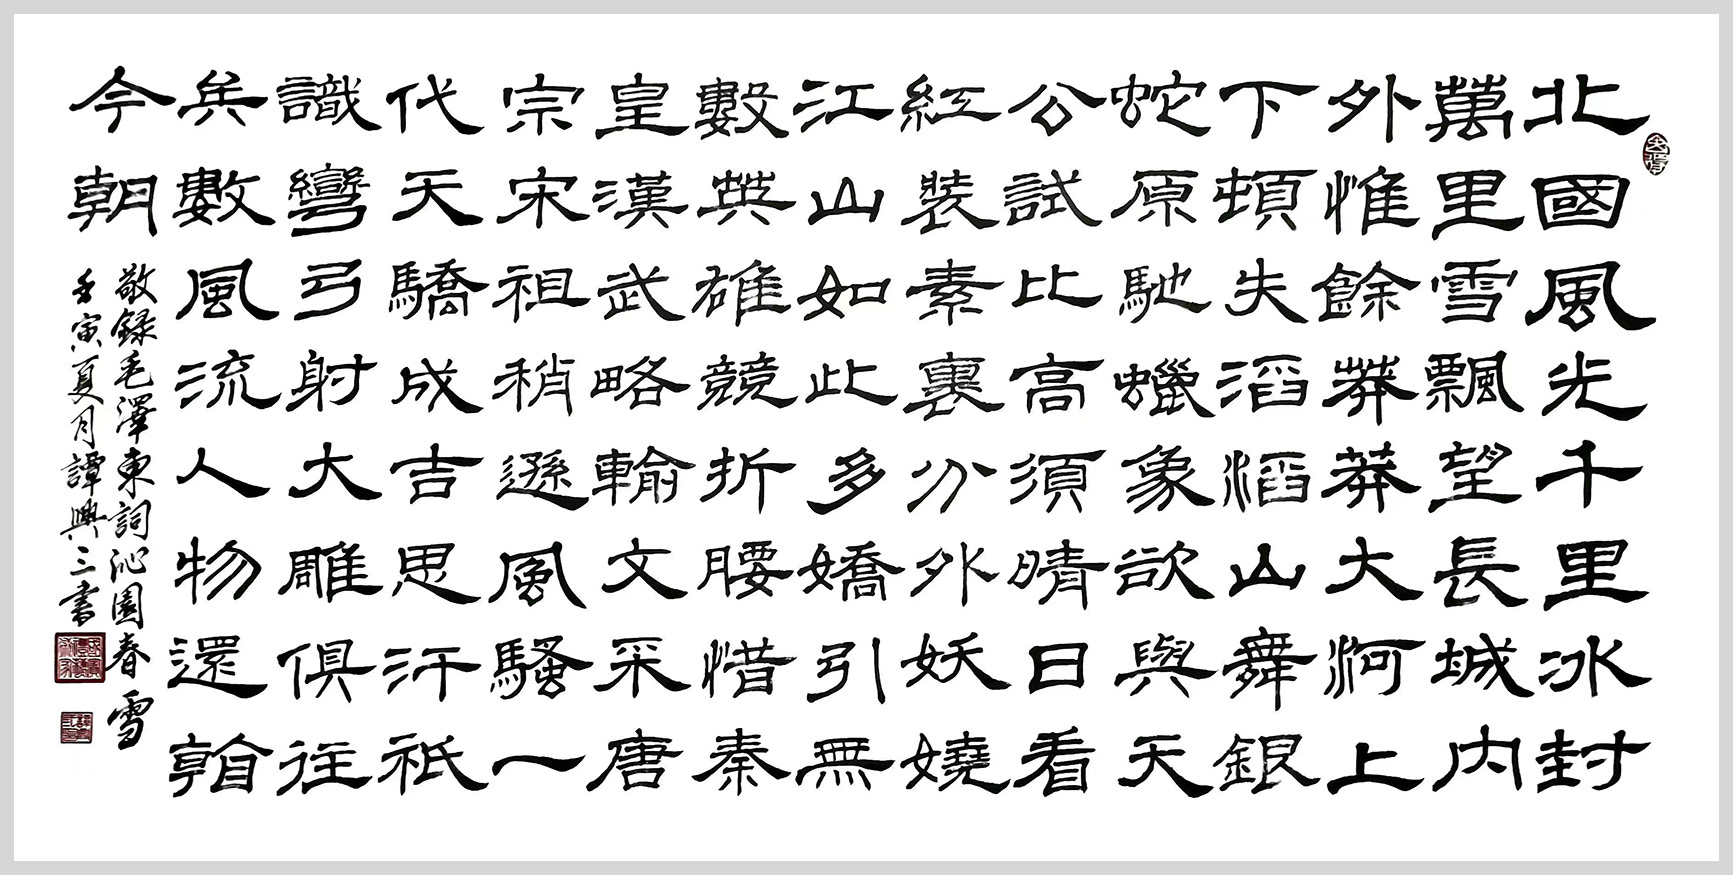 北國風光千里冰封
萬里雪飄望長城內
外惟餘莽莽大河上
下頓失滔滔山舞銀
蛇原馳蠟象欲與天
公試比高須晴日看
紅裝素裹分外妖嬈
江山如此多嬌引無
數英雄競折腰惜秦
皇漢武略輸文采唐
宗宋祖稍遜風騷一
代天驕成吉思汗祇
識彎弓射大雕俱往
矣數風流人物還看
今朝
敬録毛澤東詞沁園春雪
壬寅夏月譚興三書